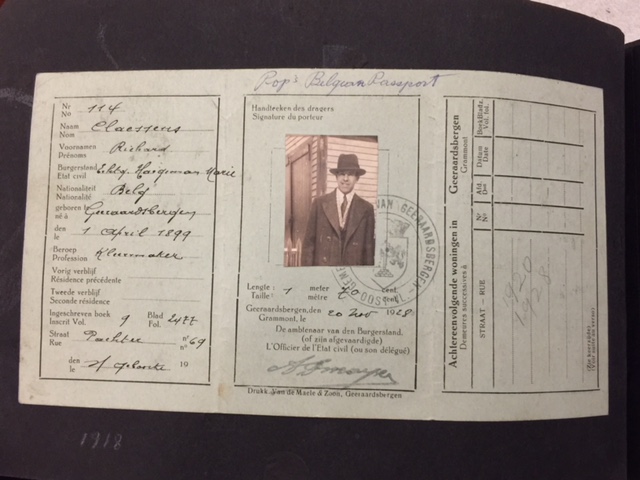 Pop's Belgian Passport
Nr
No 114
Naam
Nom Claessens
Voornamen
Prénoms Richard
Burgerstand
Etat civil Marie
Nationaliteit
Nationalité Belg
geboren te
né à Geeraardsbergen
den
le 1 April 1899
Beroep
Profession
Vorig verblijf
Résidence précédente
Tweede verblijf
Seconde résidence
Ingeschreven boek Blad
Inscrit Vol. 9 Fol. 2477
Straat
Rue n° 69
den
le 19
Handteeken des dragers
Signature du porteur
Lengte : 1 meter 70 cent.
Taille : mètre cent.
Geeraardsbergen, den 20 Nov 1928
Grammont, le
De ambtenaar van den Burgerstand,
(of zijn afgevaardigde)
L'Officier de l'Etat civil (ou son délégué)
Drukk. Van de Maele & Zoon, Geeraardsbergen
VAN GEERAARDSBERGEN
Achtereenvolgende woningen in Geeraardsbergen
Demeures successives à Grammont
STRAAT - RUE
Nr
No
Afd.
Datum
Date
Boek Bladz.
Vol. fol.
1918